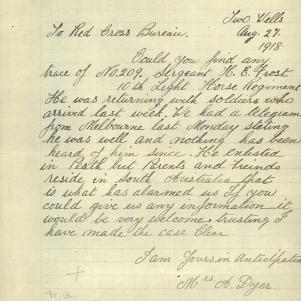 Two Wells
Aug. 27.
1918.
To Red Cross Bureau.
Could you find any
trace of No. 209, Sergeant H. E. Frost
10th Light Horse Regiment
He was returning with soldiers who
arrived last week. We had a telegram
from Melbourne last Monday stating
he was well and nothing has been
heard of him since. He Enlisted
in Perth but Parents and Freinds
reside in South Australia that
is what has alarmed us If you
could give us any information it
would be very welcome trusting I
have made the case Clear
I am Yours in Anticipation
Mrs A. Dyer.